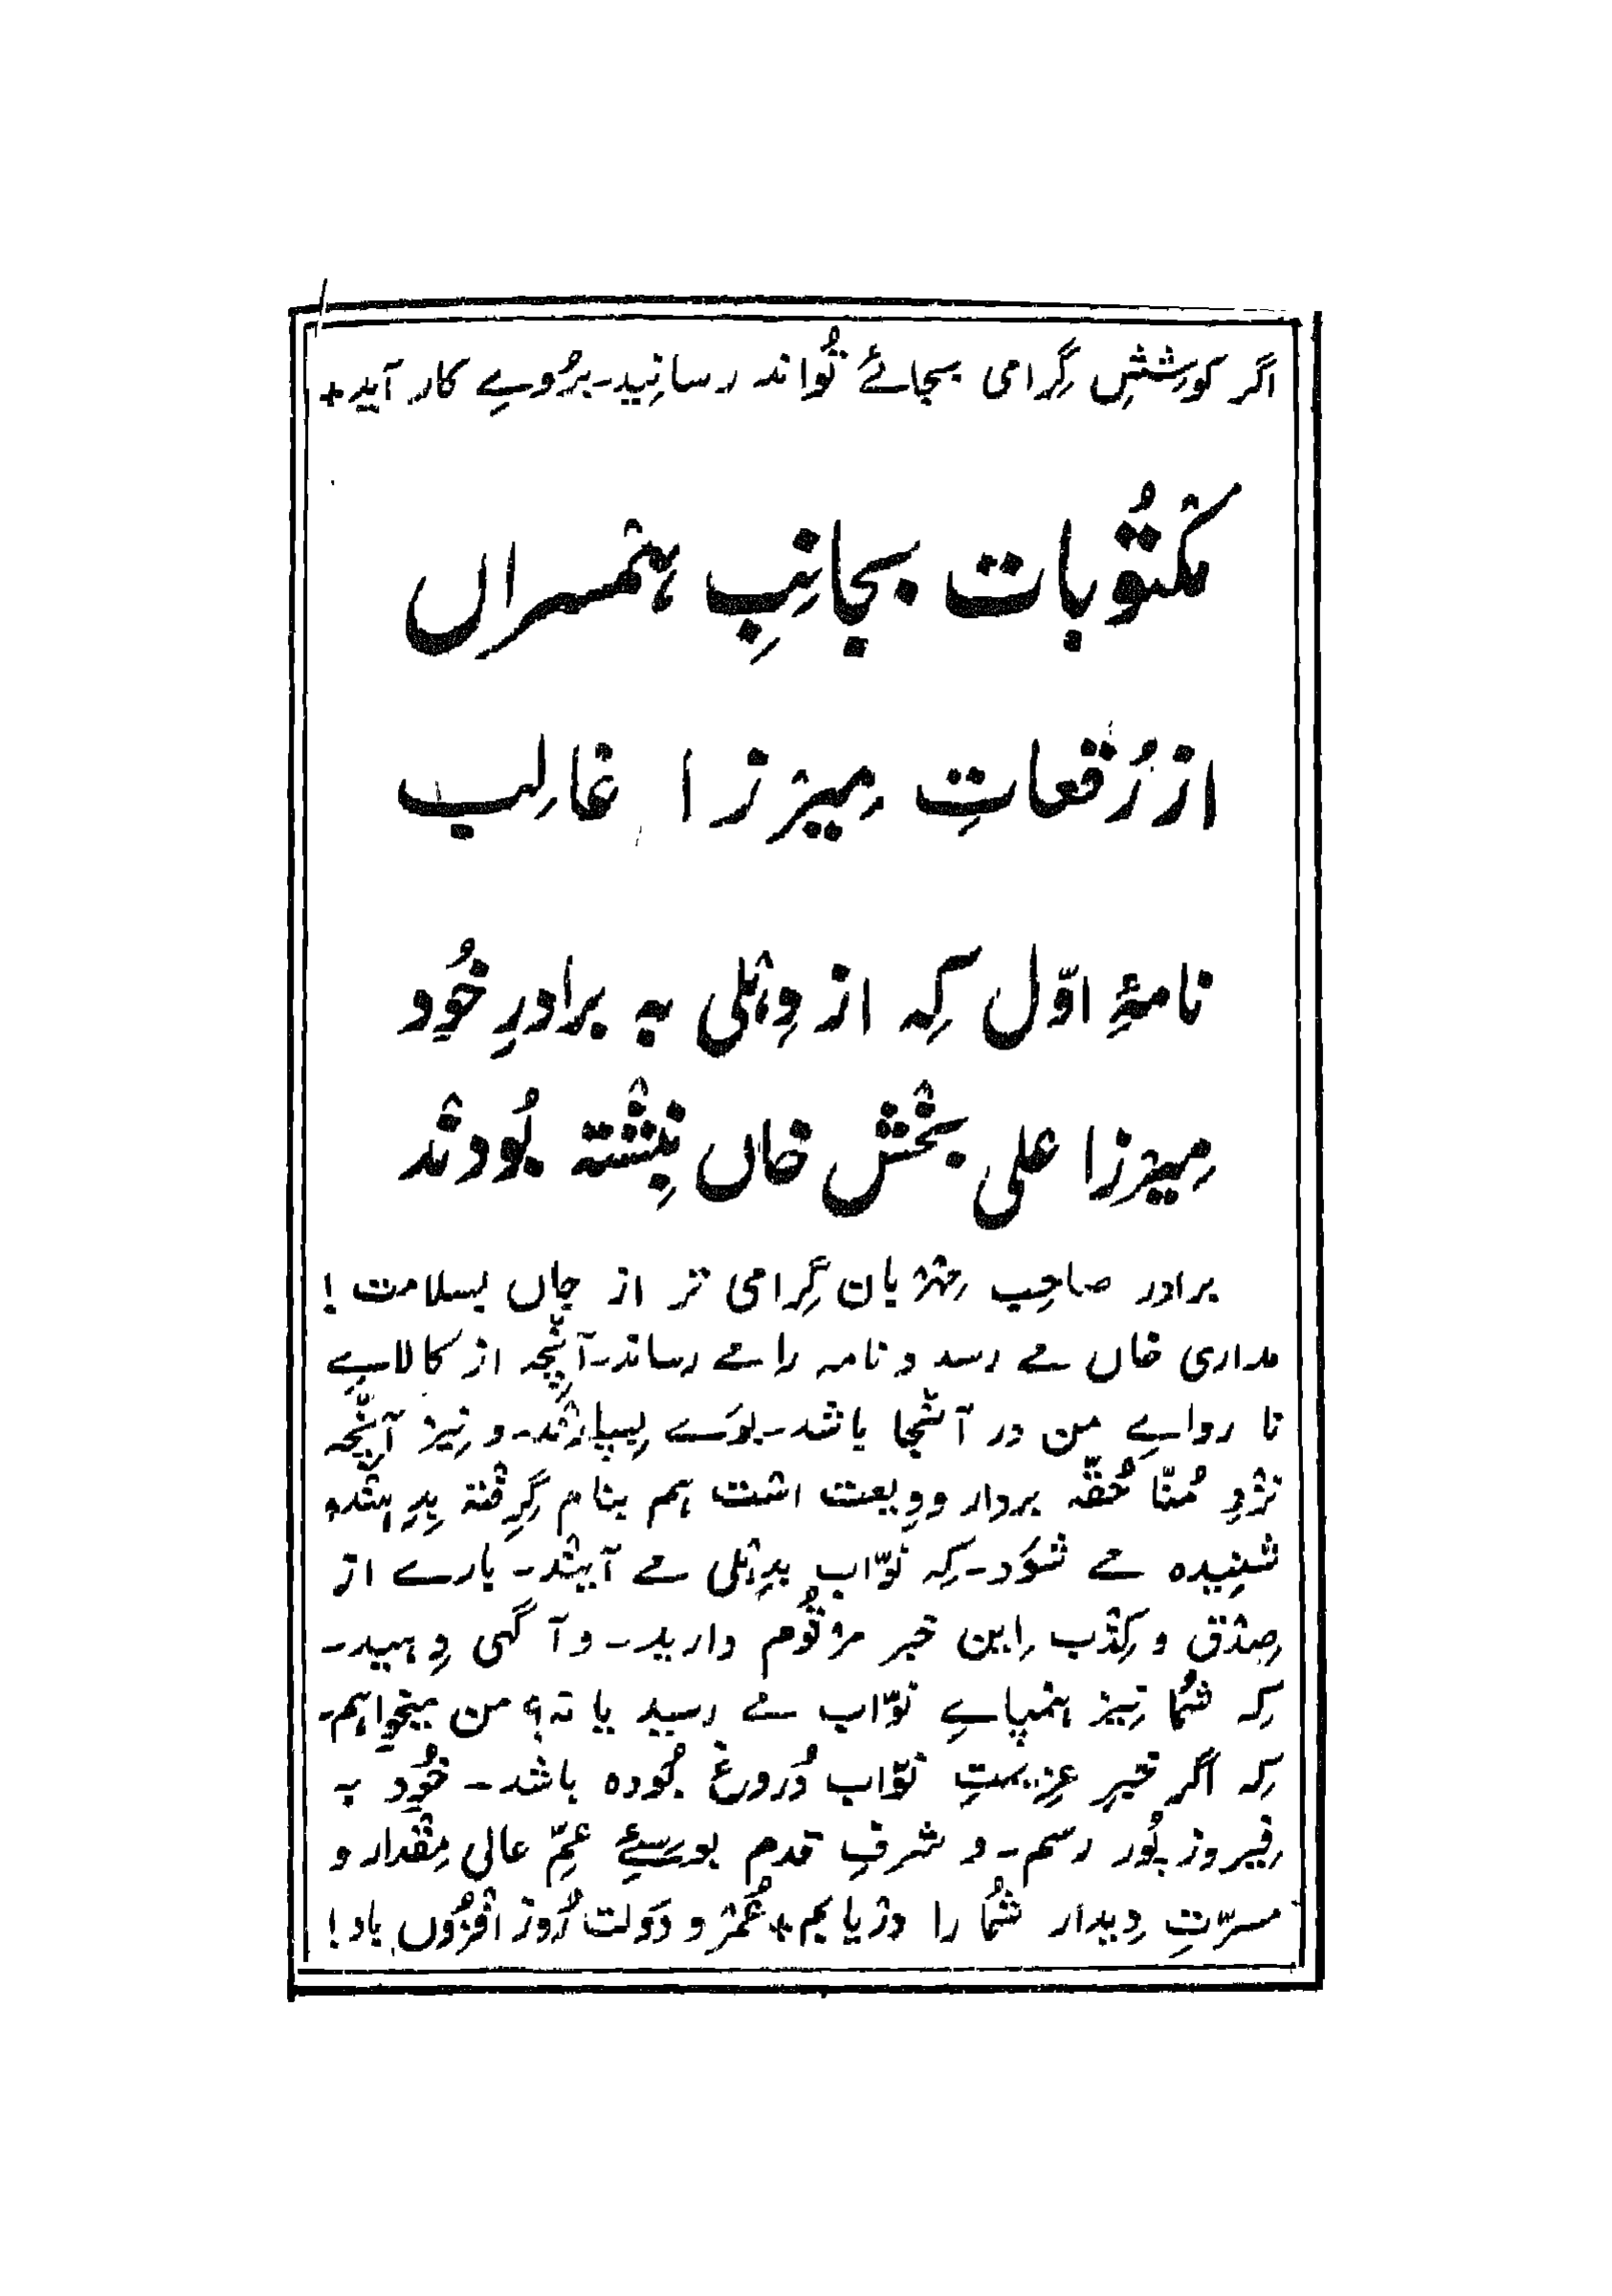 اگر کوشِشِ گِرامی بجائے تُواند رسانِید۔ برُوے کار آید+
مکتُوبات بجانِبِ ہمسراں
از رُقعاتِ مِیرزا غالِب
نامۂِ اوّل کِہ از دِہلی بہ برادرِ خُود
مِیرزا علی بخش خاں نِبِشتہ بُودند
برادر صاحِب مِہربان گِرامی تر از جاں بسلامت !
مداری خاں مے رسد و نامہ را مے رساند۔ آنچِہ از کالاےِ
نا رواےِ من در آنجا باشد۔ بوَے بِسپارند۔ و نِیز آنچِہ
نزدِ مُنّا حُقّہ بردار ودِیعت است ہم بنام گِرِفتہ بِدِہند و
شنِیدہ مے شوَد۔ کِہ نوّاب بدِہلی مے آیند۔ بارے از
صِدق و کِذب اِین خبر مرقُوم دارید۔ و آگہی دِہید۔
کِہ شُما نِیز ہمپاےِ نوّاب مے رسید یا نہ؟ من میخواہم۔
کِہ اگر خبرِ عزِیمتِ نوّاب دُروغ بُودہ باشد۔ خُود بہ
فِیروزپُور رسم۔ و شرفِ قدم بوسیِٔ عمِّ عالی مِقدار و
مسرّتِ دِیدار شُما را دریابم+ عُمر و دَولت رُوز افزُوں باد !